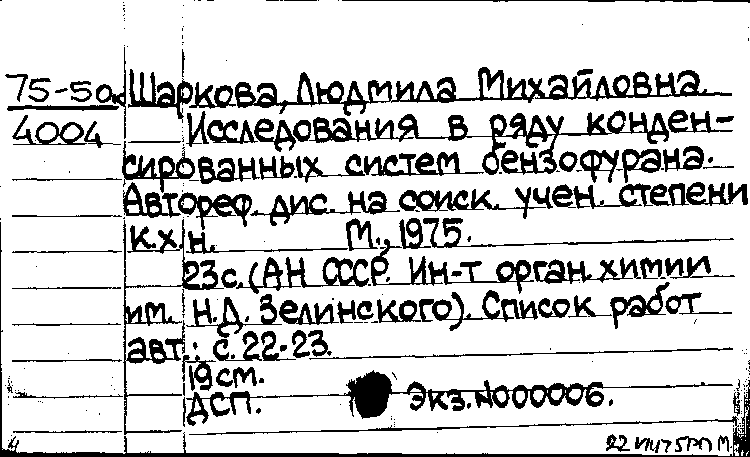 75-5 Шаркова, Людмила Михайловна.
4004 Исследования в ряду конден-
сированных систем бензофурана.
Автореф. дис. на соиск. учен. степени
к.х.н. М., 1975.
23с. (АН СССР. Ин-т орган. химии
им. Н.Д. Зелинского). Список работ
авт.: с. 22-23.
19 см.
ДСП. Экз. N000006.